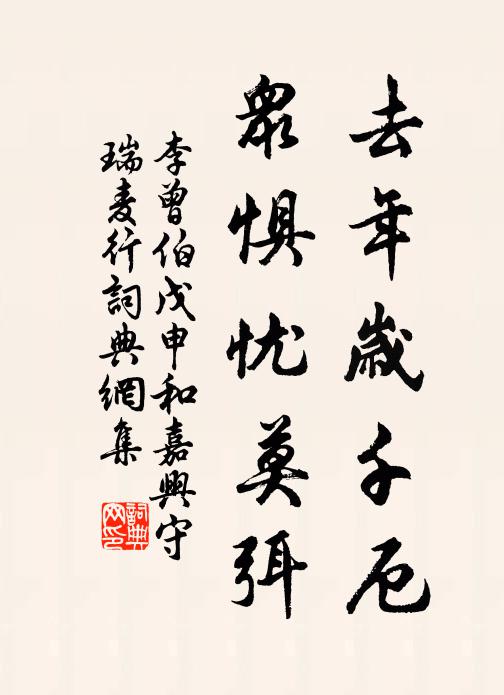 去年歲千厄
眾惧忧莫弭
李曾伯戊申和嘉興守
瑞麦行詞典網集
詞典
网印